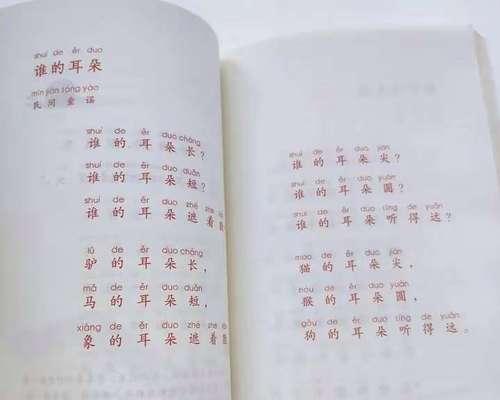 shuí de ěr duo
谁的耳朵
mín jiān tóng yáo
民间童谣
shuí de ěr duo cháng
谁的耳朵长？
shuí de ěr duo duǎn
谁的耳朵短？
shuí de ěr duo zhē zhe
谁的耳朵遮着
lǘ de ěr duo cháng
驴的耳朵长，
mǎ de ěr duo duǎn
马的耳朵短，
xiàng de ěr duo zhē zhe
象的耳朵遮着
shuí de ěr duo jiān
谁的耳朵尖？
shuí de ěr duo yuán
谁的耳朵圆？
shuí de ěr duo tīng de yuǎn
谁的耳朵听得远？
māo de ěr duo jiān
猫的耳朵尖，
hóu de ěr duo yuán
猴的耳朵圆，
gǒu de ěr duo tīng de yuǎn
狗的耳朵听得远。